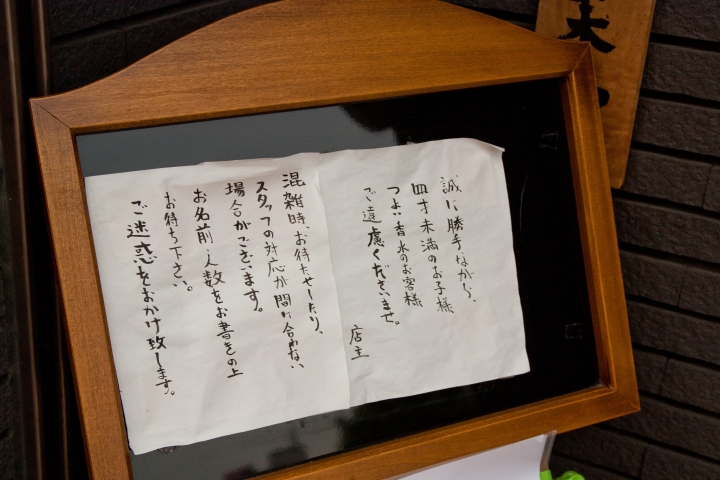 誠に勝手ながら、
四才未満のお子様
つよい香水のお客様
ご遠慮くださいませ。
店主
混雑時、お待たせしたり、
スタッフの対応が間に合わない
場合がございます。
お名前・人数をお書きの上
お待ち下さい。
ご迷惑をおかけ致します。